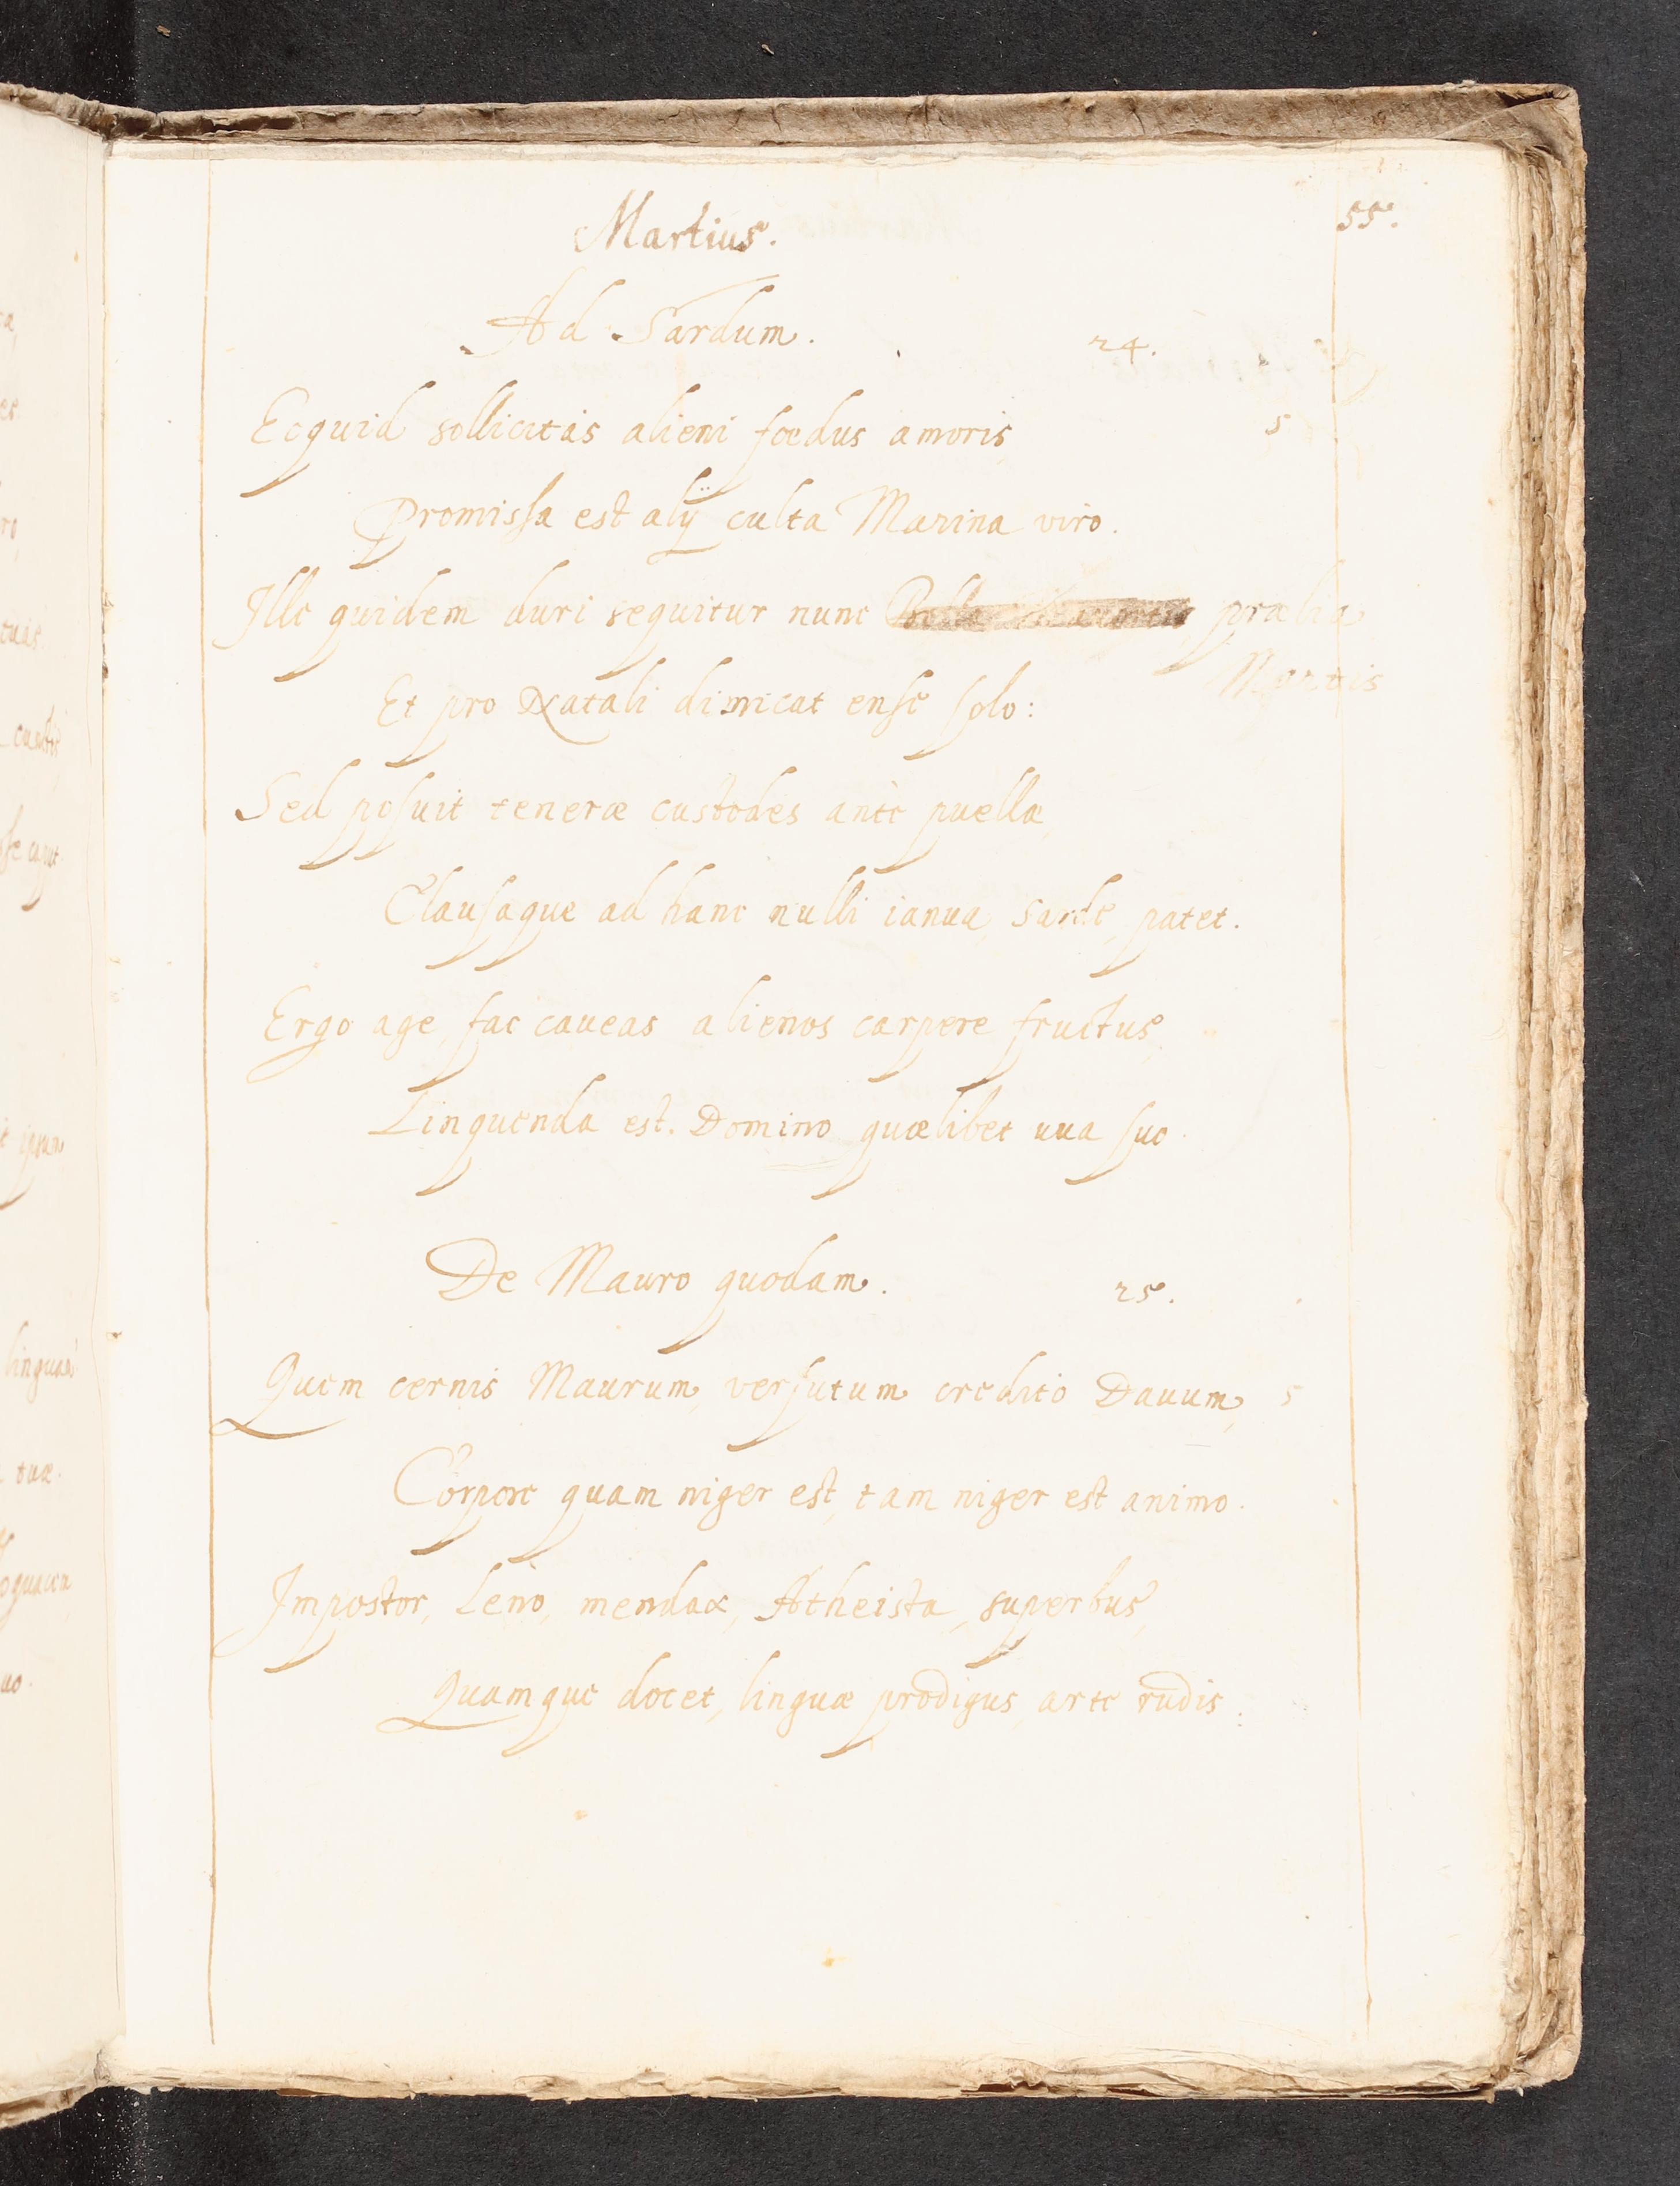 Martius. 55.
Ad Sardum. 24.
Ecquid sollicitas alieni foedus amoris, 5
Promissa est alÿ culta Marina viro.
Ille quidem duri sequitur nunc prælia
Martis
Et pro Natali dimicat ense solo:
Sed posuit teneræ custodes ante puellæ,
Clausaque ad hanc nulli ianua, Sarde, patet.
Ergo age, fac caueas alienos carpere fructus,
Linquenda est Domino quælibet uua suo.
De Mauro quodam. 25.
Quem cernis Maurum, versutum credito Dauum, 5
Corpore quam niger est, tam niger est animo.
Impostor, Leno, mendax, Atheista, superbus,
Quamque docet, linguæ prodigus, arte rudis.